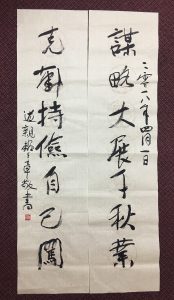 二零一八年四月一日
謀略大展千秋業
克勤持儉自己闖
敬書